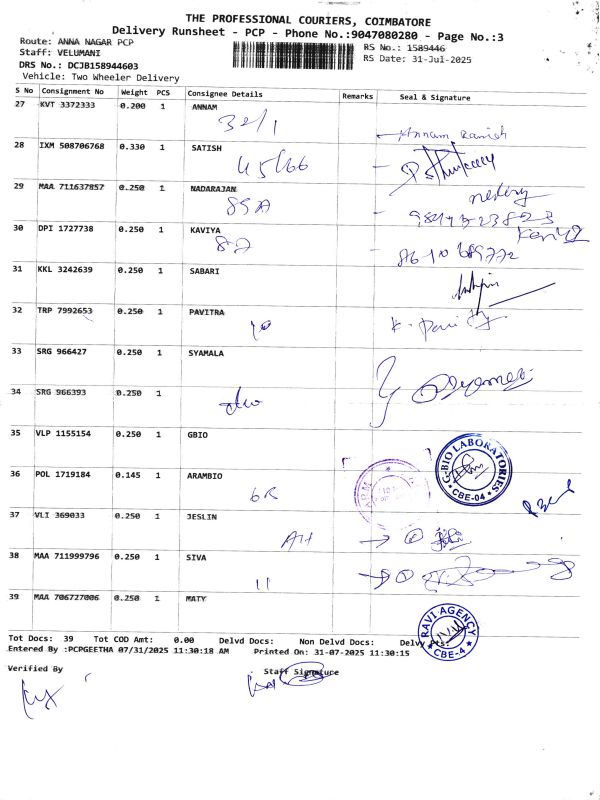 THE PROFESSIONAL COURIERS, COIMBATORE
Delivery Runsheet - PCP - Phone No.:9047080280 - Page No.:3
Route: ANNA NAGAR PCP
RS No.: 1589446
Staff: VELUMANI
RS Date: 31-Jul-2025
DRS No.: DCJB158944603
Vehicle: Two Wheeler Delivery
S No Consignment No Weight PCS Consignee Details Remarks Seal & Signature
27 KVT 3372333 0.200 1 ANNAM
32/1
Annam
28 IXM 508706768 0.330 1 SATISH
45/66
29 MAA 711637857 0.250 1 NADARAJAN
89A
30 DPI 1727738 0.250 1 KAVIYA
Kaviya
8610689772
31 KKL 3242639 0.250 1 SABARI
32 TRP 7992653 0.250 1 PAVITRA
10
33 SRG 966427 0.250 1 SYAMALA
34 SRG 966393 0.250 1
35 VLP 1155154 0.250 1 GBIO
G-BIO LABORATORIES
CBE-04
36 POL 1719184 0.145 1 ARAMBIO
6R
37 VLI 369033 0.250 1 JESLIN
38 MAA 711999796 0.250 1 SIVA
11
39 MAA 706727006 0.250 1 MATY
RAVI AGENCY
CBE-4
Tot Docs: 39 Tot COD Amt: 0.00 Delvd Docs: Non Delvd Docs: Delvy Pts:
Entered By :PCPGEETHA 07/31/2025 11:30:18 AM Printed On: 31-07-2025 11:30:15
Verified By
Staff Signature